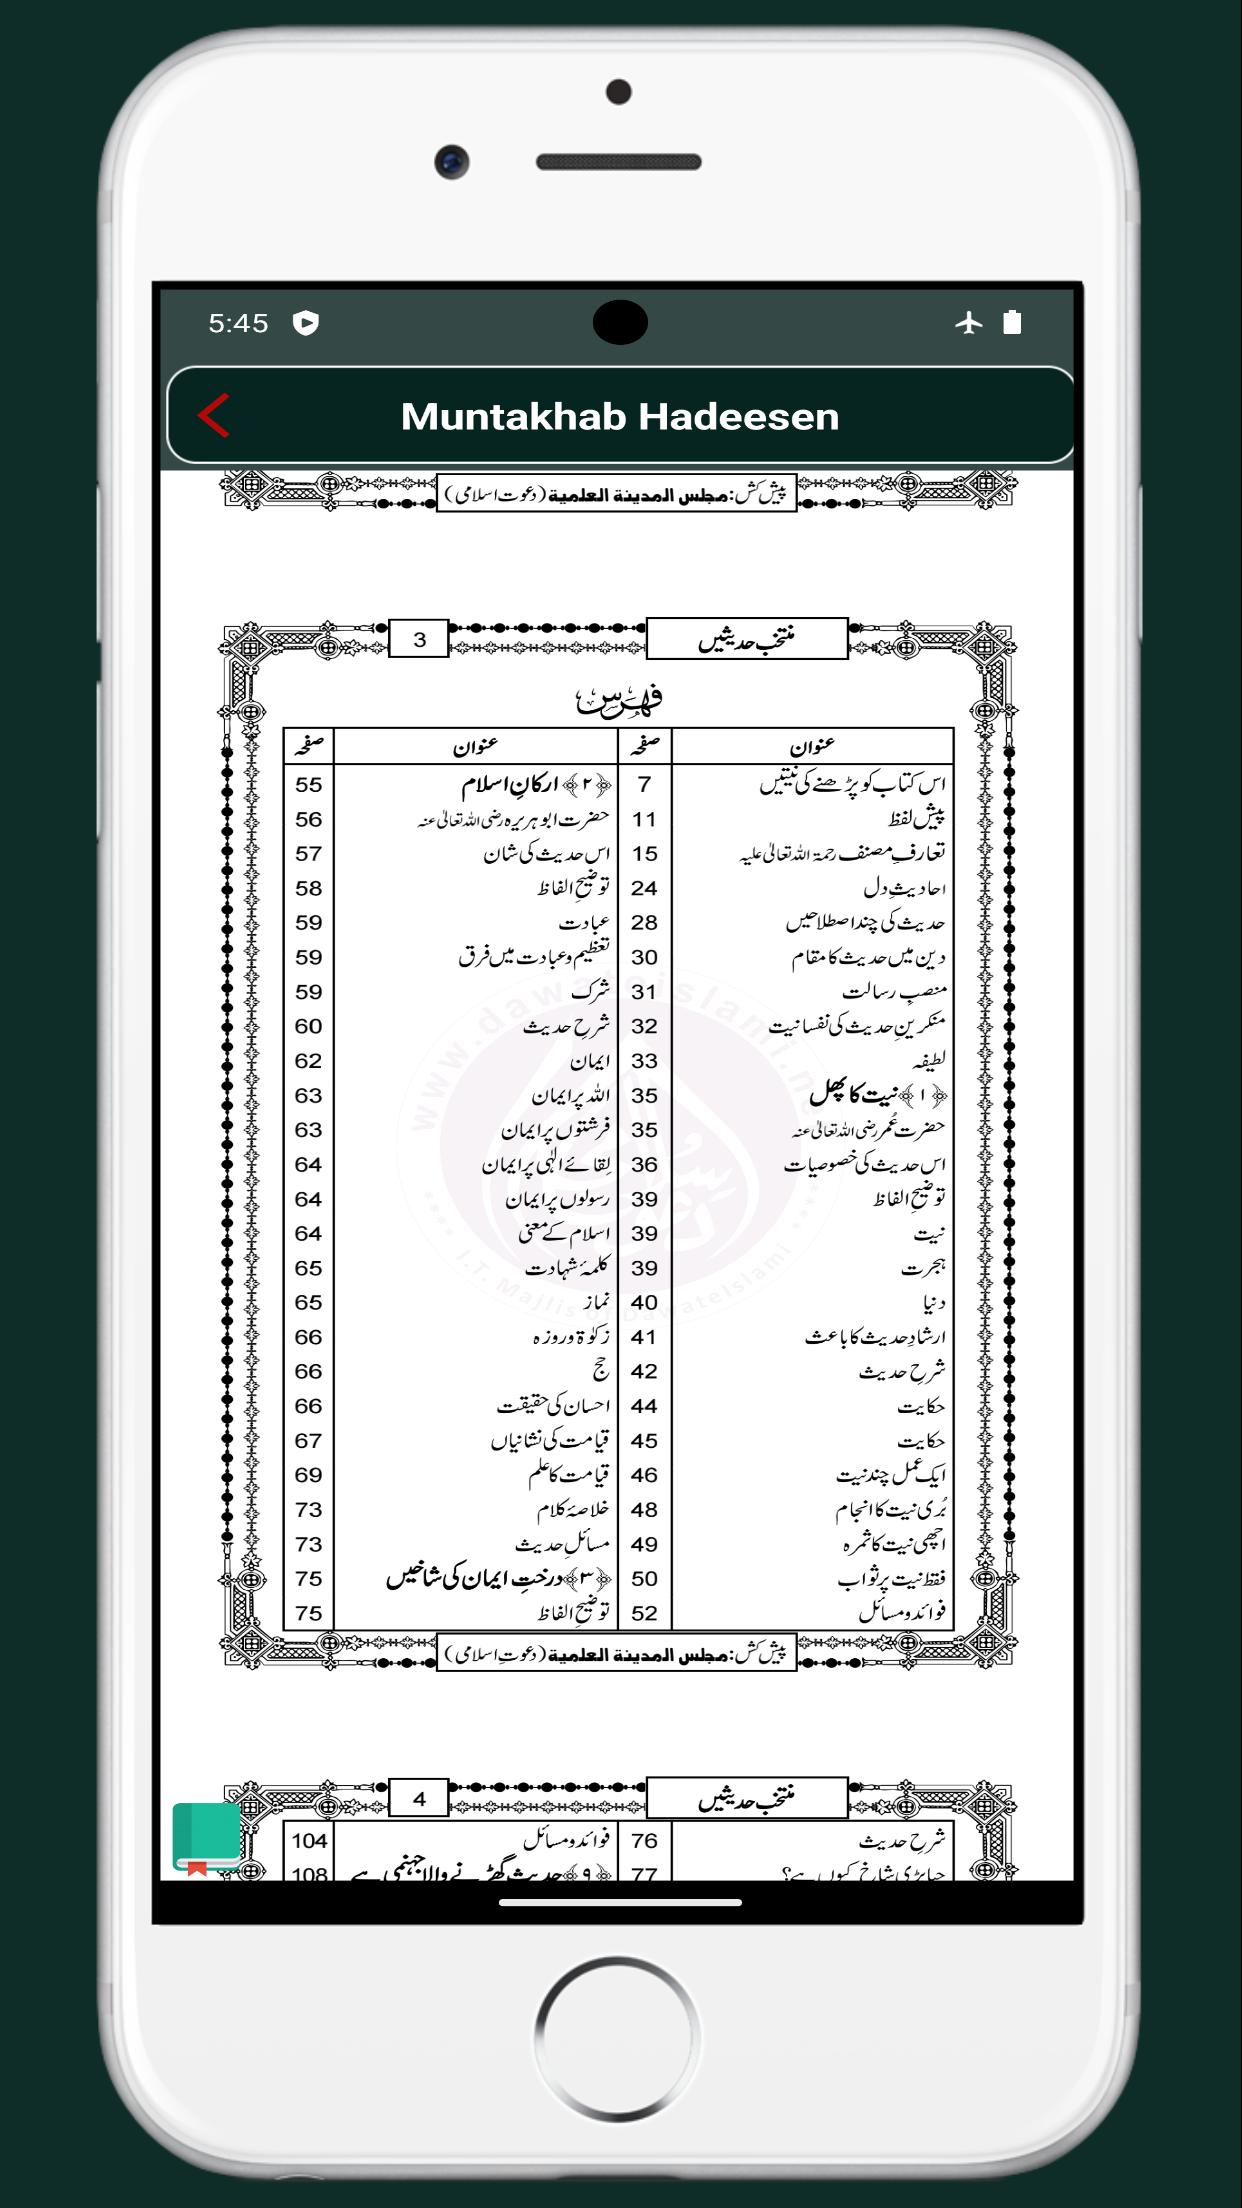 5:45
Muntakhab Hadeesen
پیش کش: مجلس المدینۃ العلمیۃ (دعوت اسلامی)
منتخب حدیثیں 3
فہرس
عنوان صفحہ عنوان صفحہ
اس کتاب کو پڑھنے کی نیتیں 7 ﴿۲﴾ ارکانِ اسلام 55
پیش لفظ 11 حضرت ابو ہریرہ رضی اللہ تعالیٰ عنہ 56
تعارفِ مصنف رحمۃ اللہ تعالیٰ علیہ 15 اس حدیث کی شان 57
احادیثِ دل 24 توضیحِ الفاظ 58
حدیث کی چند اصطلاحیں 28 عبادت 59
دین میں حدیث کا مقام 30 تعظیم وعبادت میں فرق 59
منصبِ رسالت 31 شرک 59
منکرینِ حدیث کی نفسانیت 32 شرحِ حدیث 60
لطیفہ 33 ایمان 62
﴿۱﴾ نیت کا پھل 35 اللہ پر ایمان 63
حضرت عُمر رضی اللہ تعالیٰ عنہ 35 فرشتوں پر ایمان 63
اس حدیث کی خصوصیات 36 لِقائے الٰہی پر ایمان 64
توضیحِ الفاظ 39 رسولوں پر ایمان 64
نیت 39 اسلام کے معنی 64
ہجرت 39 کلمۂ شہادت 65
دنیا 40 نماز 65
ارشادِ حدیث کا باعث 41 زکوٰۃ وروزہ 66
شرحِ حدیث 42 حج 66
حکایت 44 احسان کی حقیقت 66
حکایت 45 قیامت کی نشانیاں 67
ایک عمل چند نیت 46 قیامت کا علم 69
بُری نیت کا انجام 48 خلاصۂ کلام 73
اچھی نیت کا ثمرہ 49 مسائلِ حدیث 73
فقط نیت پر ثواب 50 ﴿۳﴾ درختِ ایمان کی شاخیں 75
فوائد و مسائل 52 توضیحِ الفاظ 75
www.dawateislami.ne
I.T. Majlis of DawateIslami
پیش کش: مجلس المدینۃ العلمیۃ (دعوتِ اسلامی)
منتخب حدیثیں 4
شرحِ حدیث 76 فوائد و مسائل 104
حیا بڑی شاخ کیوں ہے؟ 77 ﴿۹﴾ حدیث گھڑنے والا جہنمی ہے 108